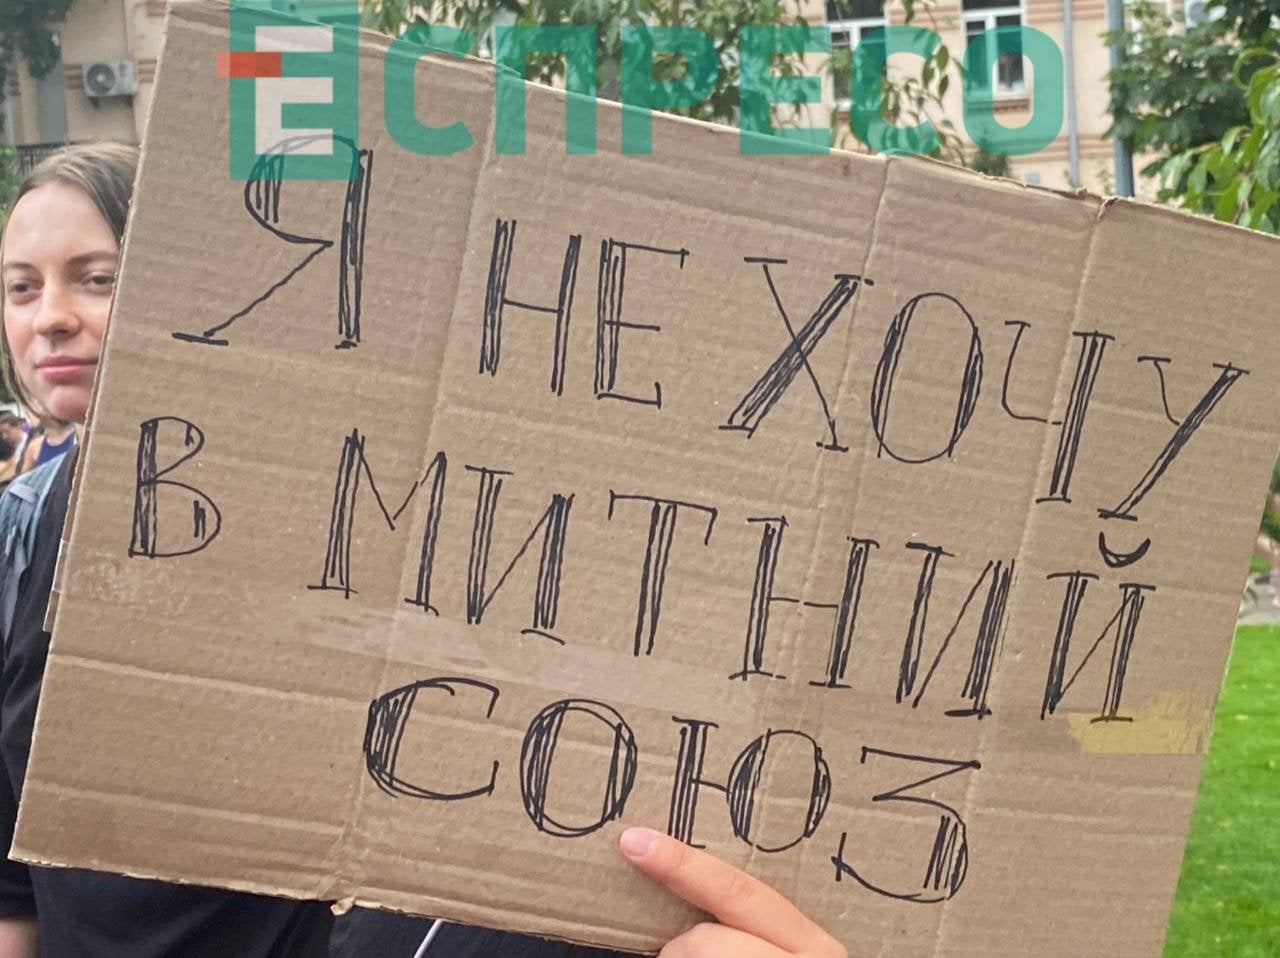 ЕСПРЕСО
Я НЕ ХОЧУ
В МИТНИЙ
СОЮЗ